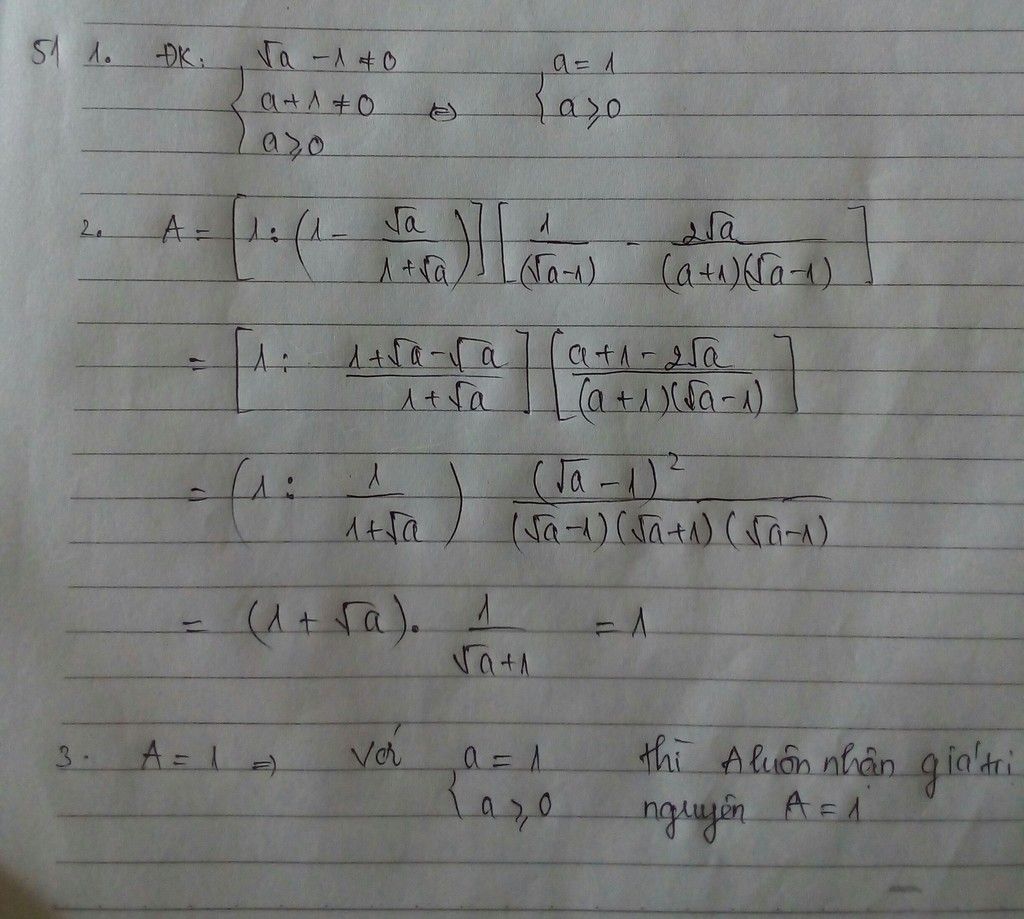 51 1. ĐK: √a - 1 ≠ 0
a + 1 ≠ 0
a ≥ 0
⇔
a = 1
a ≥ 0
2. A = [1 : (1 - √a/(1+√a))] [1/(√a-1) - 2√a/((a+1)(√a-1))]
= [1 : (1+√a-√a)/(1+√a)] [(a+1-2√a)/((a+1)(√a-1))]
= (1 : 1/(1+√a)) (√a-1)²/((√a-1)(√a+1)(√a-1))
= (1+√a). 1/(√a+1) = 1
3. A = 1 ⇒ Với { a = 1 thì A luôn nhận giá trị
a ≥ 0 nguyên A = 1